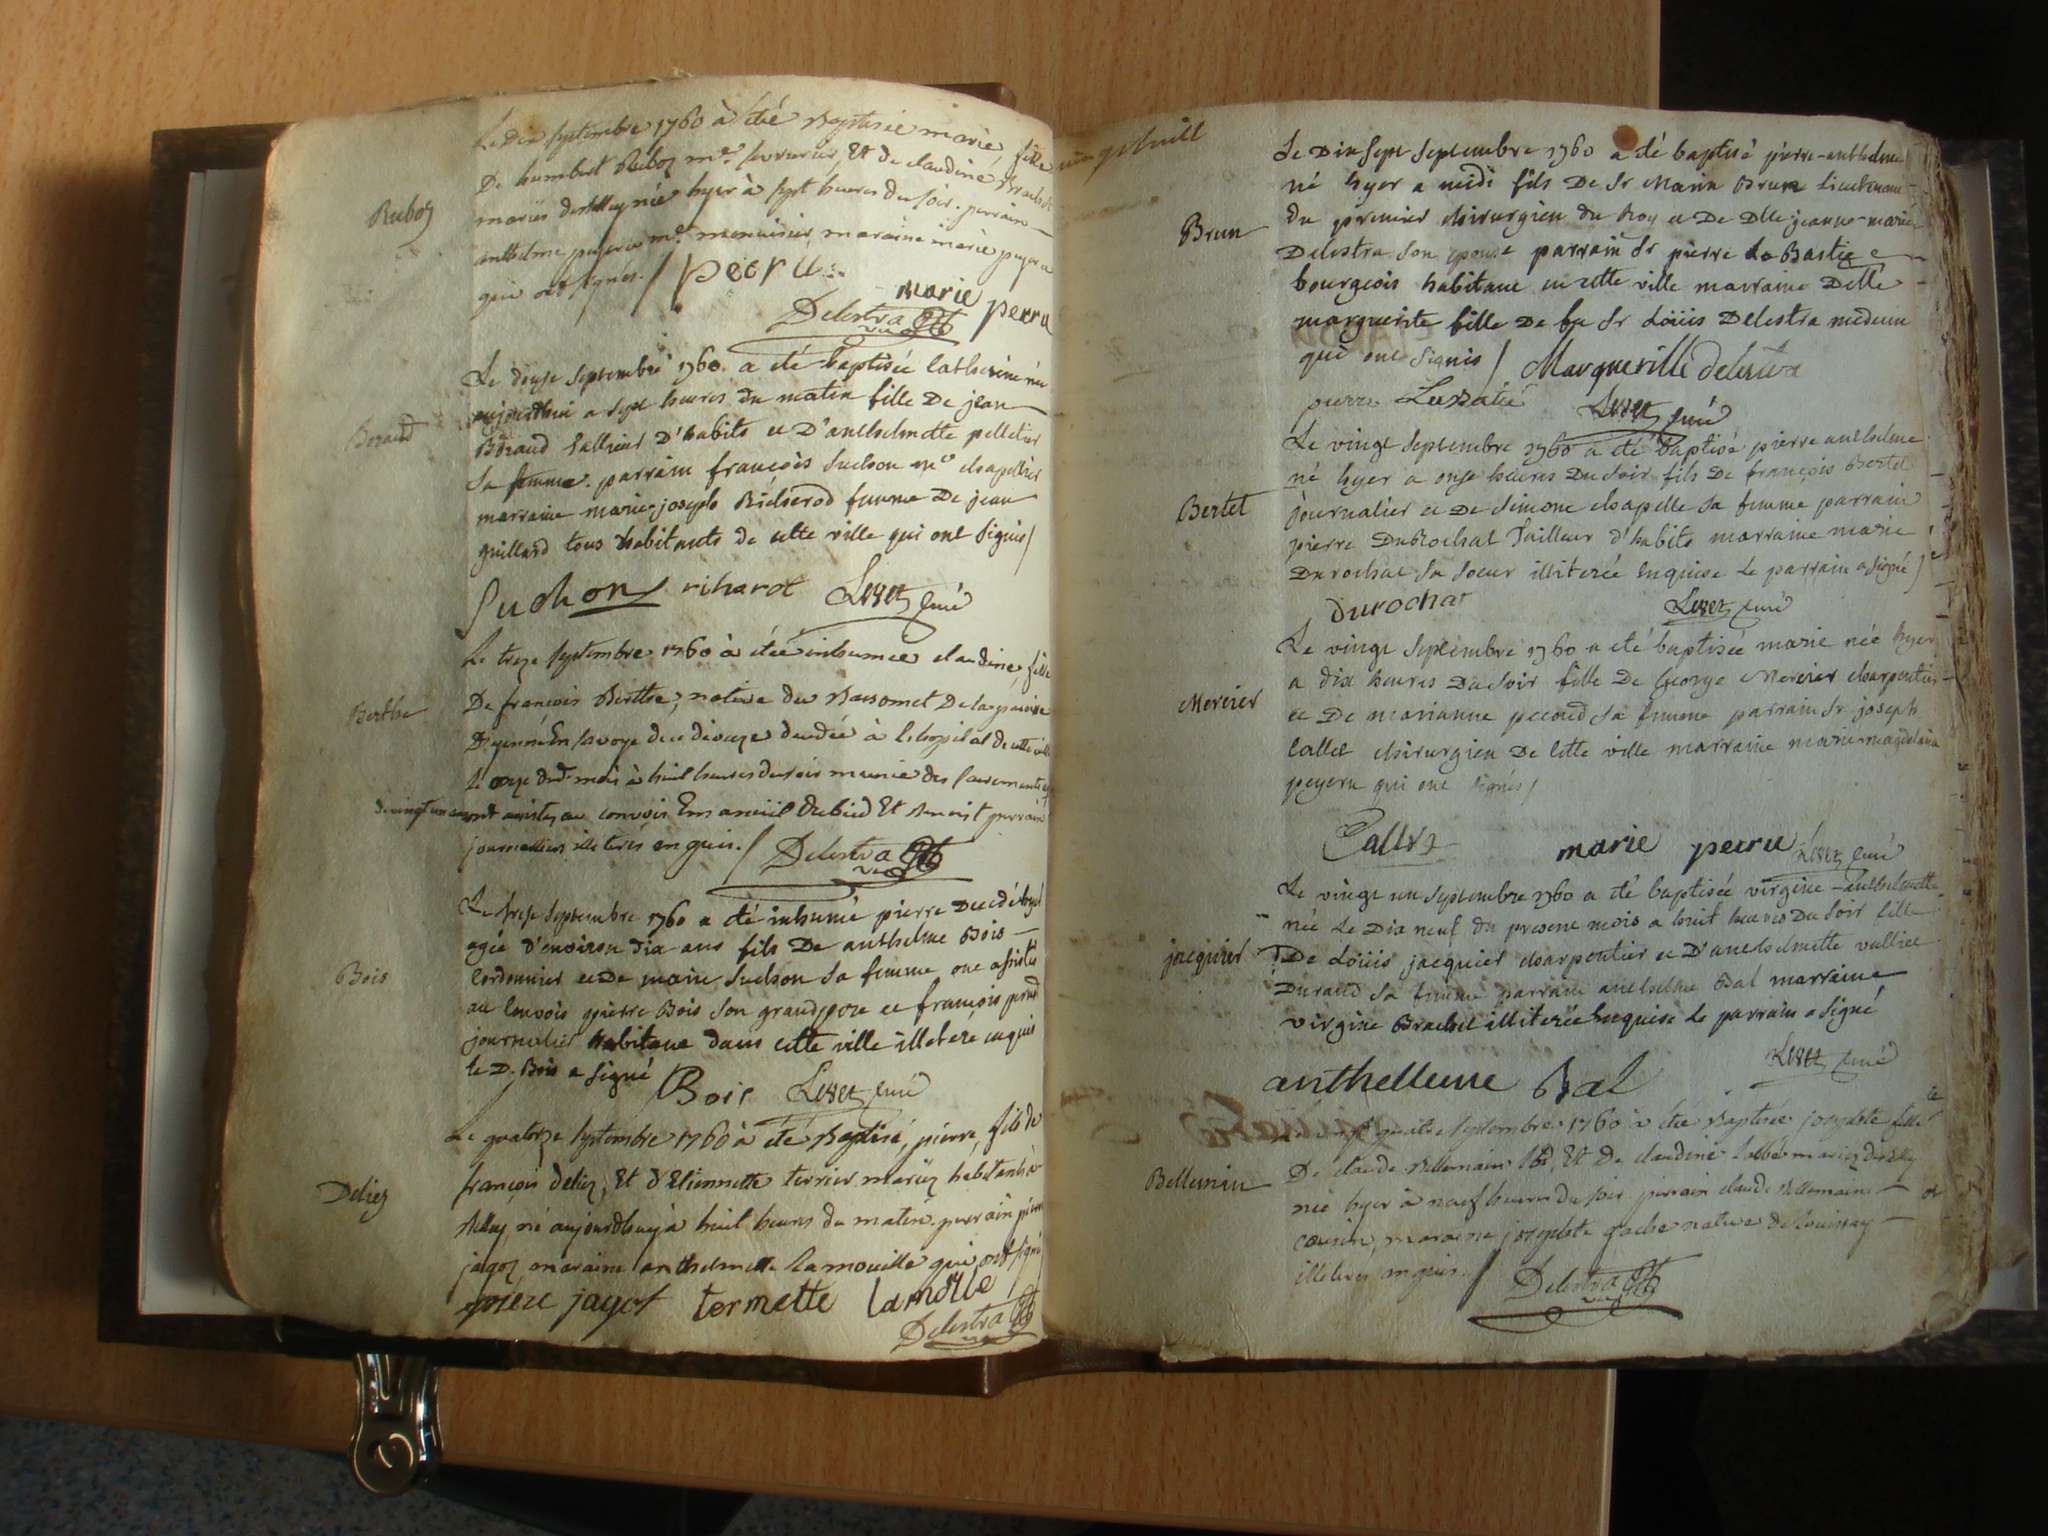 Le dix septembre 1760 à été Baptisée marie, fille
De humbert Ruboz me. serrurier Et de claudine Brachet
Ruboz
mariés de Belley née hyer à sept heures du soir. parrain
anthelme me. menuisier, maraine marie
qui ont signés. / pecru
marie pecru
Delestra
Le douze septembre 1760 a été baptisée Catherine née
aujourdhui a sept heures du matin fille De jean
Boraud
Boraud tallieur D'habits et D'anthelmette pelletier
sa femme. parrain françois Suchon me chapellier
marraine marie-joseph femme De jean
guillard tous habitants de cette ville qui ont signés /
Suchon richarot Curé
Le treze septembre 1760 à étée inhumée claudine, fille
Berthe
De françois Berthe, native du De la paroisse
D'yenne En savoye decedée à L'hopital de cette ville
Le onze dud. mois à huit heures du soir munie des sacrements
de vingt un ans ont assistez au convois Et Benoist perrain
journaliers illeterés enquis. / Delestra
Le treze septembre 1760 a été inhumé pierre Decedé hyer
agée d'environ dix ans fils De anthelme Bois
Bois
cordonnier et De marie Suchon sa femme ont assistés
au Convois pierre Bois son grand pere et françois
journalier habitant dans cette ville illeteré enquis
le D. Bois a signé
Bois Curé
Le quatorze septembre 1760 à été Baptisé, pierre, fils de
Deliez
françois deliez, Et d'Etiennette terrier mariez habitants à
Belley, né aujourdhuy à huit heures du matin. parrain pierre
jagoz, maraine anthelmette Lamouille qui ont signé
piere jagot termette lamolle
Delestra
Le Dix sept septembre 1760 a été baptisé pierre-anthelme
né hyer a midi fils De Sr Marin Brun Lieutenant
Brun
du premier chirurgien du Roy et De Dlle jeanne-marie
Delestra son epouse parrain Sr pierre La Bastie
bourgeois habitant en cette ville marraine Delle
marguerite fille De feu Sr Loüis Delestra medecin
qui ont signés / Margueritte delestra
pierre Curé
Le vingt septembre 1760 a été baptisé pierre anthelme
né hyer a onze heures Du soir fils De françois Bertet
Bertet
journalier et De Simone chapelle sa femme parrain
pierre DuRochat Tailleur d'habits marraine marie
Durochat sa soeur illiterée enquise Le parrain a signé /
durochat Curé
Le vingt septembre 1760 a été baptisée marie née hyer
a dix heures Du soir fille De George Mercier charpentier
Mercier
et De marianne sa femme parrain Sr joseph
Callet chirurgien De Cette ville marraine marie-magdelaine
qui ont signés /
Callet marie pecru Curé
Le vingt un septembre 1760 a été baptisée virgine-anthelmette
née Le Dix neuf du present mois a huit heures Du soir fille
jacquier
De Loüis jacquier charpentier et D'anthelmette valliet
Durand sa femme parrain anthelme Bal marraine
virgine Brachet illiterée enquise Le parrain a signé
Curé
anthellme Bal
quatre septembre 1760 à étée Baptisée josephte fille
Bellemin
De claude Bellemain Et De claudine mariez de Belley
née hyer à neuf heures du soir. parrain claude Bellemain
cousin, maraine josephte native de
illeteres enquis. / Delestra